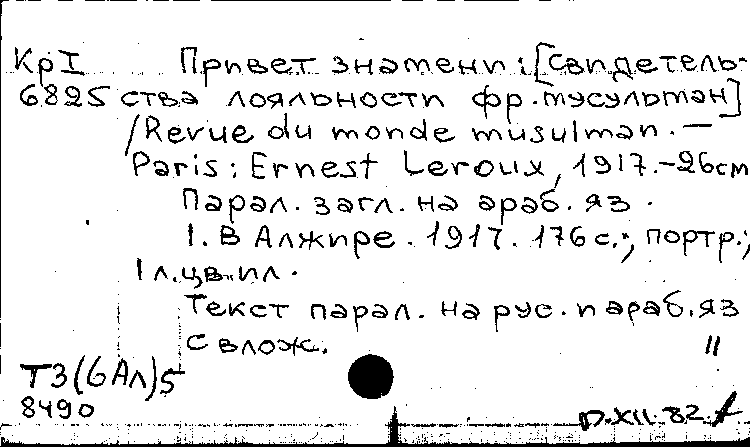 КрI Привет знамени: [Свидетель-
6825 ства лояльности фр. мусульман]
/Revue du monde musulman. —
Paris: Ernest Leroux, 1917. - 26см
Парал. загл. на араб. яз.
1. В Алжире. 1917. 176 с.; портр.;
1 л. цв. ил.
Текст парал. на рус. и араб. яз
С влож. "
Т3(6Ал)5
8490
XII.82